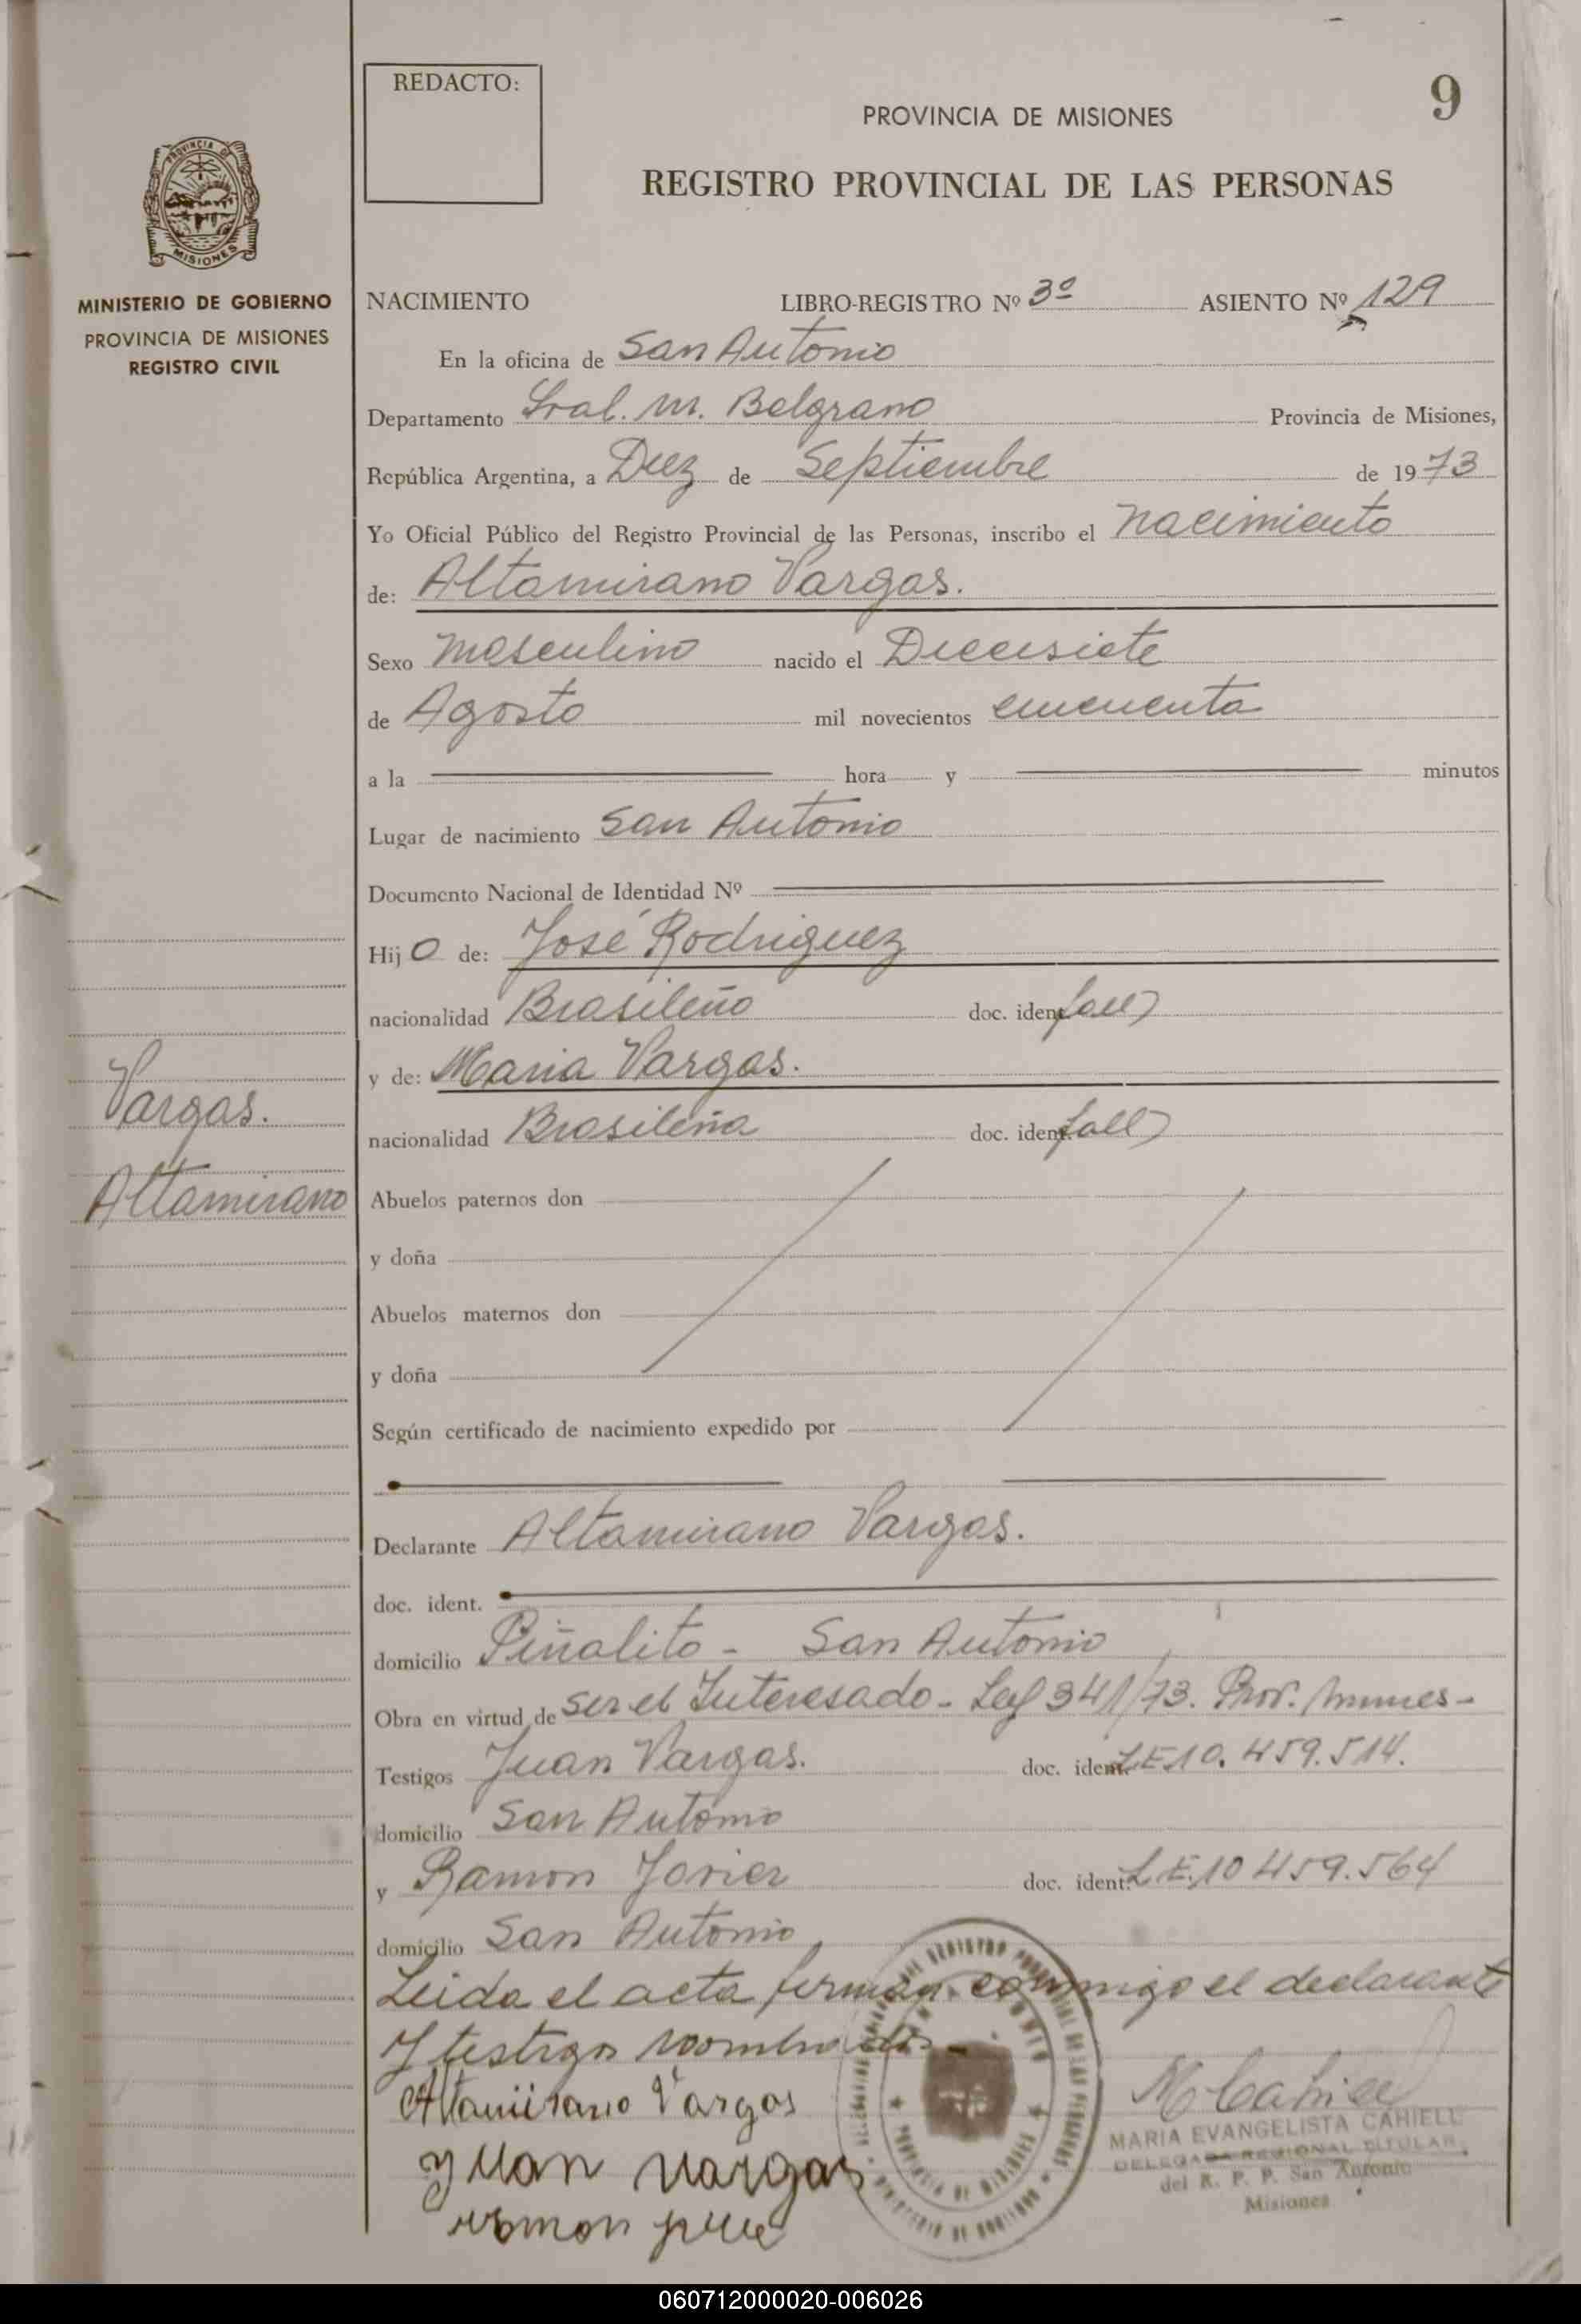 9
REDACTO:
PROVINCIA DE MISIONES
REGISTRO PROVINCIAL DE LAS PERSONAS
PROVINCIA DE
MISIONES
MINISTERIO DE GOBIERNO
PROVINCIA DE MISIONES
REGISTRO CIVIL
Vargas.
Altamirano
NACIMIENTO LIBRO-REGISTRO Nº 3º ASIENTO Nº 129
En la oficina de San Antonio
Departamento Gral. M. Belgrano Provincia de Misiones,
República Argentina, a Diez de Septiembre de 1973
Yo Oficial Público del Registro Provincial de las Personas, inscribo el nacimiento
de: Altamirano Vargas.
Sexo masculino nacido el Diecisiete
de Agosto mil novecientos cincuenta
a la hora y minutos
Lugar de nacimiento San Antonio
Documento Nacional de Identidad Nº
Hijo de: José Rodriguez
nacionalidad Brasileño doc. ident.
y de: Maria Vargas.
nacionalidad Brasileña doc. ident.
Abuelos paternos don
y doña
Abuelos maternos don
y doña
Según certificado de nacimiento expedido por
Declarante Altamirano Vargas.
doc. ident.
domicilio Piñalito - San Antonio
Obra en virtud de ser el Interesado - Ley 341/73.
Testigos Juan Vargas. doc. ident. L E 10.459.514.
domicilio San Antonio
y Ramon doc. ident. L E.10 459.564
domicilio San Antonio
Leida el acta firman conmigo el declarante
y testigos nombrados
Altamirano Vargas
Juan Vargas
ramon
MARIA EVANGELISTA CAHIELL
DELEGADA REGIONAL TITULAR
del R. P. P. San Antonio
Misiones
060712000020-006026